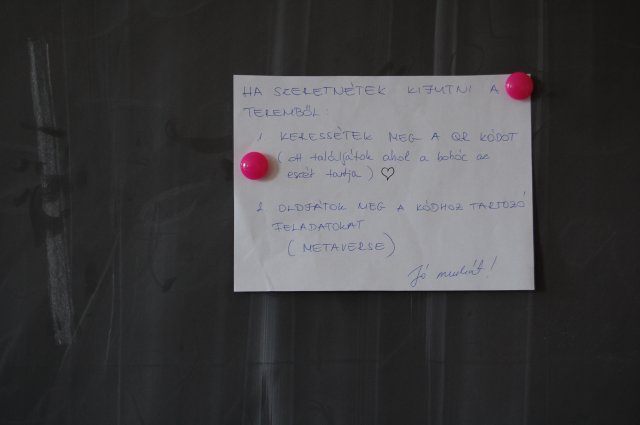 HA SZERETNÉTEK KIJUTNI A
TEREMBŐL:
1 KERESSÉTEK MEG A QR KÓDOT
(ott találjátok ahol a bohóc az
eszét tartja) ♡
2 OLDJÁTOK MEG A KÓDHOZ TARTOZÓ
FELADATOKAT
(METAVERSE)
Jó munkát!